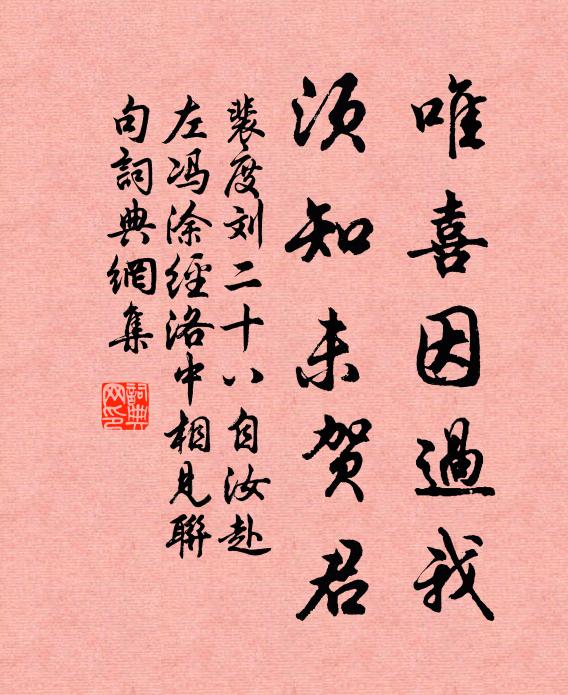 唯喜因過我
须知未贺君
裴度刘二十八自汝赴
左冯涂經洛中相見聯
句詞典網集
詞典
网印